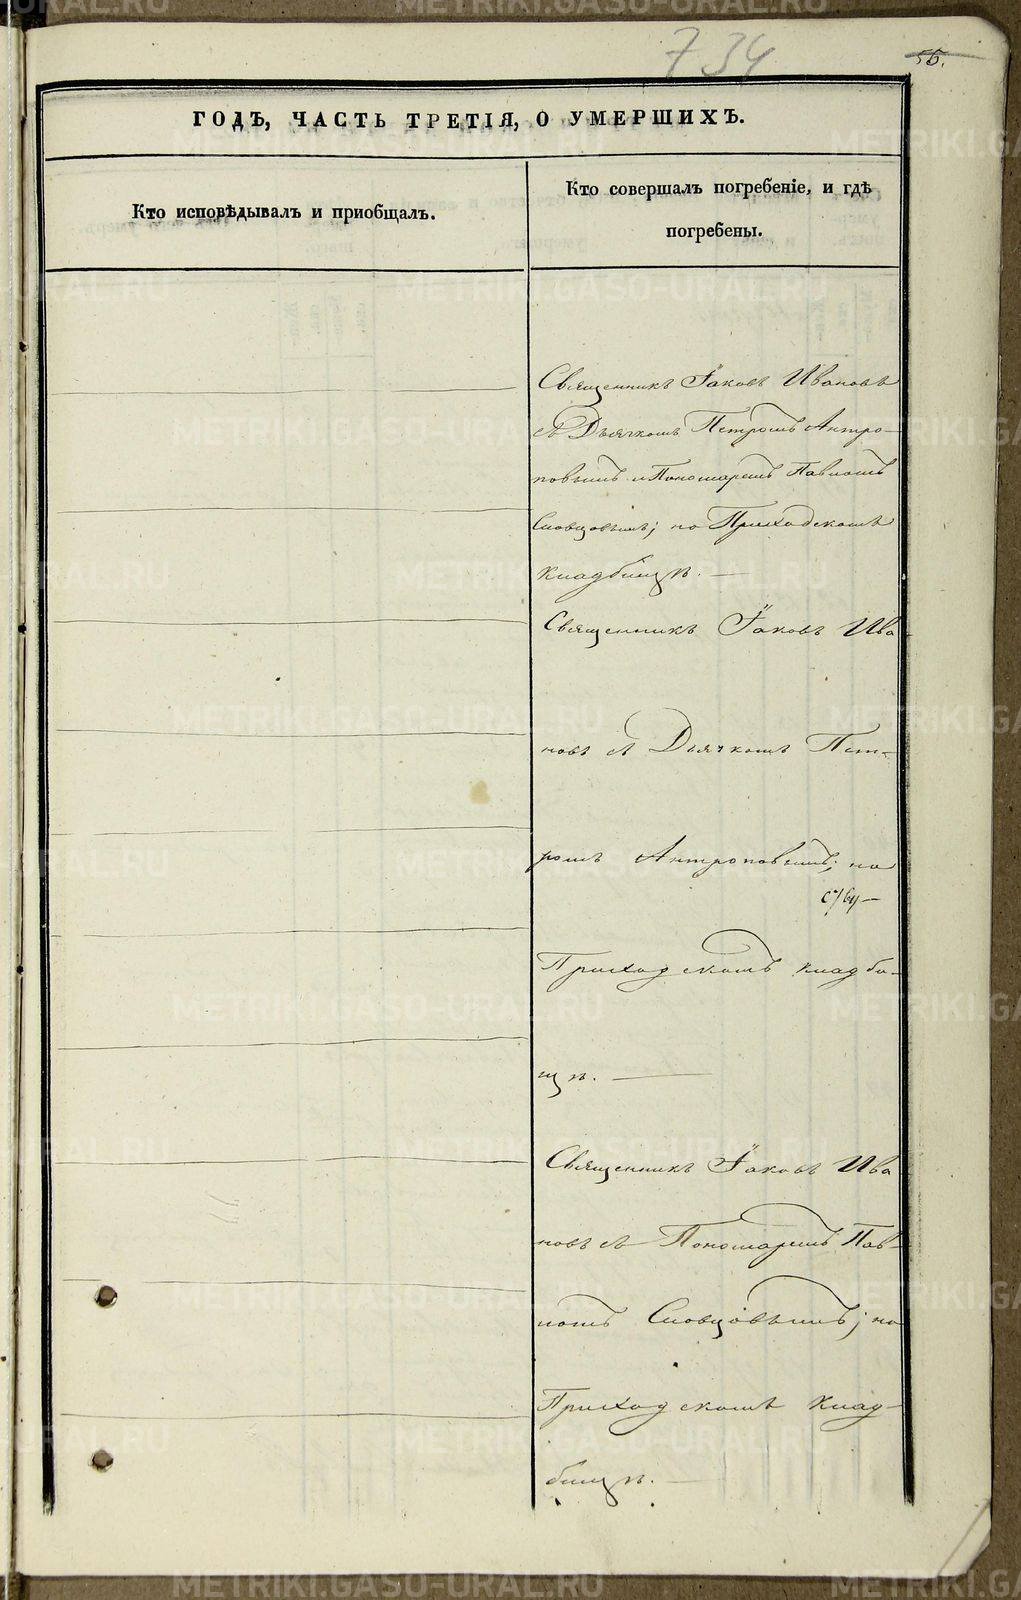 734
55.
ГОДЪ, ЧАСТЬ ТРЕТІЯ, О УМЕРШИХЪ.
Кто исповѣдывалъ и приобщалъ.
Кто совершалъ погребеніе, и гдѣ
погребены.
Священникъ Іаковъ Ивановъ
съ Дьячкомъ Петромъ Антро-
повымъ и Пономаремъ Павломъ
Словцовымъ; на Приходскомъ
кладбищѣ. —
Священникъ Іаковъ Ива-
новъ съ Дьячкомъ Пет-
ромъ Антроповымъ; на
Приходскомъ кладби-
щѣ. —
Священникъ Іаковъ Ива
новъ съ Пономаремъ Пав-
ломъ Словцовымъ; на
Приходскомъ клад-
бищѣ. —
METRIKI.GASO-URAL.RU